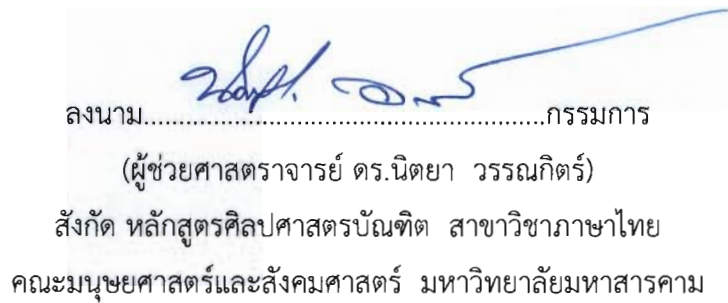 ลงนาม..........................................................กรรมการ
(ผู้ช่วยศาสตราจารย์ ดร.นิตยา วรรณกิตร์)
สังกัด หลักสูตรศิลปศาสตรบัณฑิต สาขาวิชาภาษาไทย
คณะมนุษยศาสตร์และสังคมศาสตร์ มหาวิทยาลัยมหาสารคาม